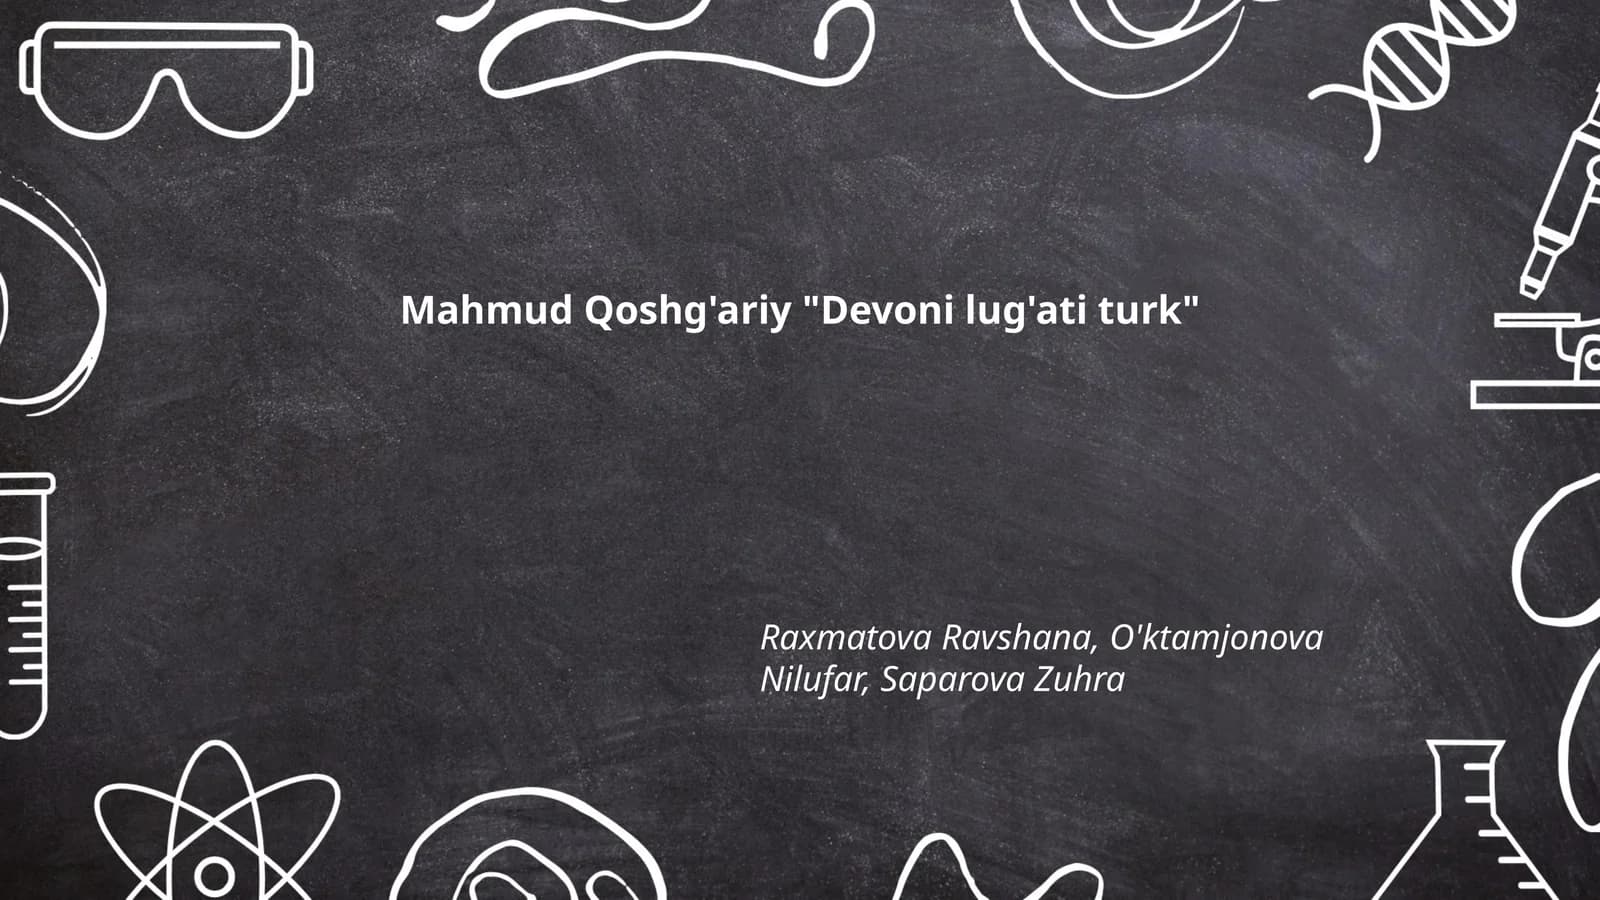 Mahmud Qoshg'ariy "Devoni lug'ati turk"
Raxmatova Ravshana, O'ktamjonova
Nilufar, Saparova Zuhra